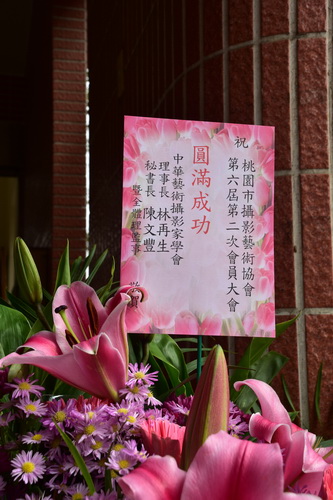 祝
桃園市攝影藝術協會
第六屆第二次會員大會
圓滿成功
中華藝術攝影家學會
理事長 林再生
秘書長 陳文豐
暨全體理監事
敬賀